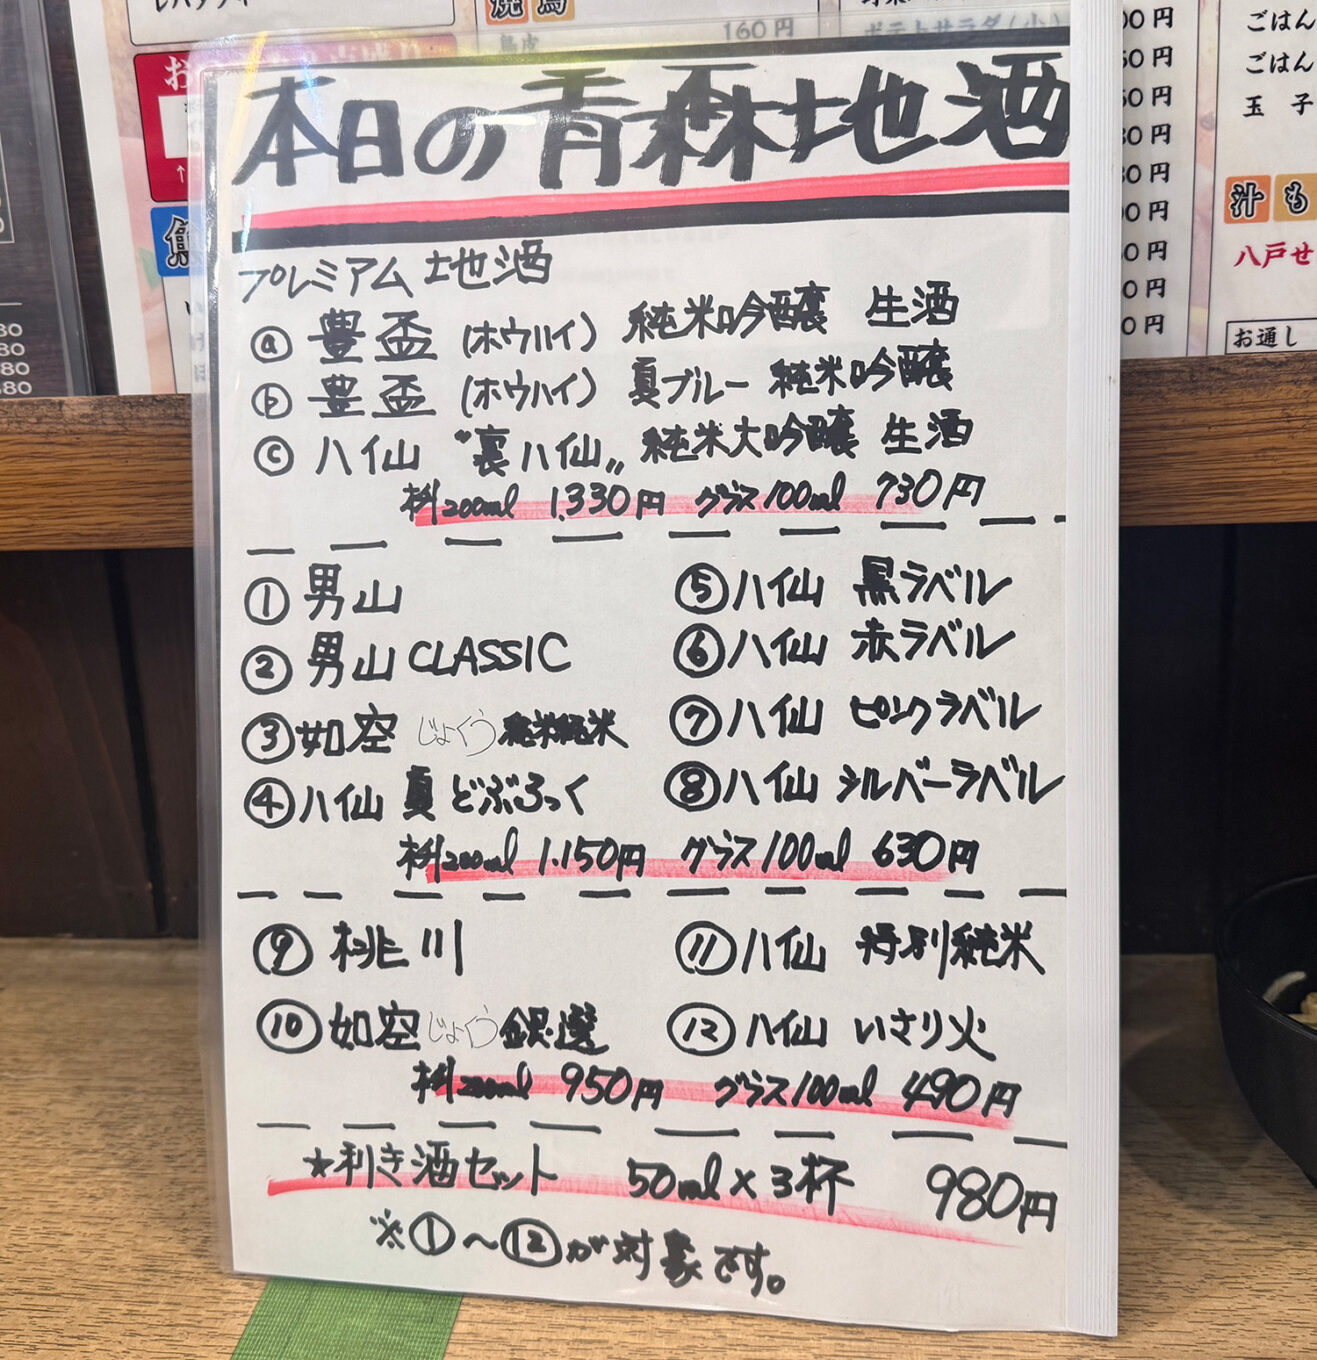 焼鳥
160円
ポテトサラダ(小)
ごはん
ごはん
玉子
汁も
八戸せ
お通し
本日の青森地酒
プレミアム地酒
ⓐ 豊盃 (ホウハイ) 純米吟醸 生酒
ⓑ 豊盃 (ホウハイ) 夏ブルー 純米吟醸
ⓒ ハイ仙 〝裏ハイ仙〟 純米大吟醸 生酒
枡200ml 1.330円 グラス100ml 730円
① 男山
② 男山 CLASSIC
③ 如空 じょくう 純米
④ ハイ仙 夏 どぶろっく
⑤ ハイ仙 黒ラベル
⑥ ハイ仙 赤ラベル
⑦ ハイ仙 ピンクラベル
⑧ ハイ仙 シルバーラベル
枡200ml 1.150円 グラス100ml 630円
⑨ 桃川
⑩ 如空 じょくう 銀選
⑪ ハイ仙 特別純米
⑫ ハイ仙 いさり火
枡200ml 950円 グラス100ml 490円
★利き酒セット 50ml×3杯 980円
※①〜⑫が対象です。